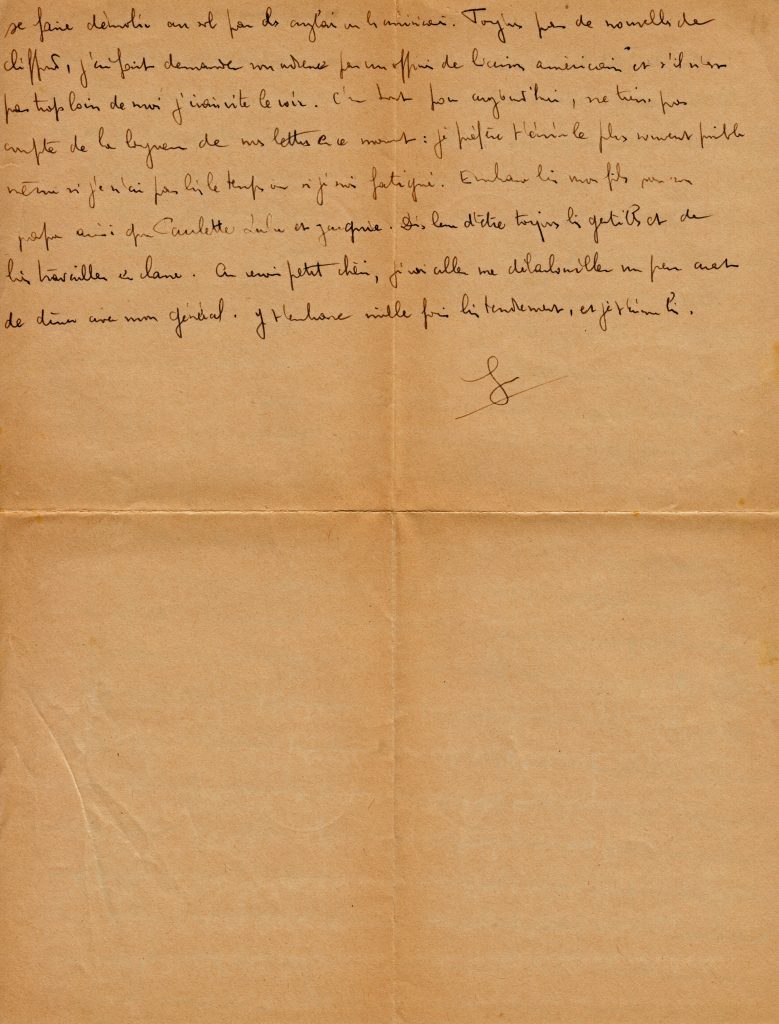 se faire démolir au sol par des anglais ou les américains. Toujours pas de nouvelles de
Clifford, j'ai fait demander son adresse par un officier de liaison américain et s'il n'est
pas trop loin de moi j'irai vite le voir. C'est tout pour aujourd'hui, ne tiens pas
compte de la longueur de mes lettres en ce moment : je préfère t'écrire le plus souvent possible
même si je n'ai pas bis le temps ou si je suis fatigué. Embrasse bis mon fils pour son
papa ainsi que Paulette Lulu et Jacquie. Dis leur d'être toujours bis gentils et de
bis travailler en classe. Au revoir petit chéri, je vais aller me débarbouiller un peu avant
de dîner avec mon général. Je t'embrasse mille fois bis tendrement, et je t'aime bis.